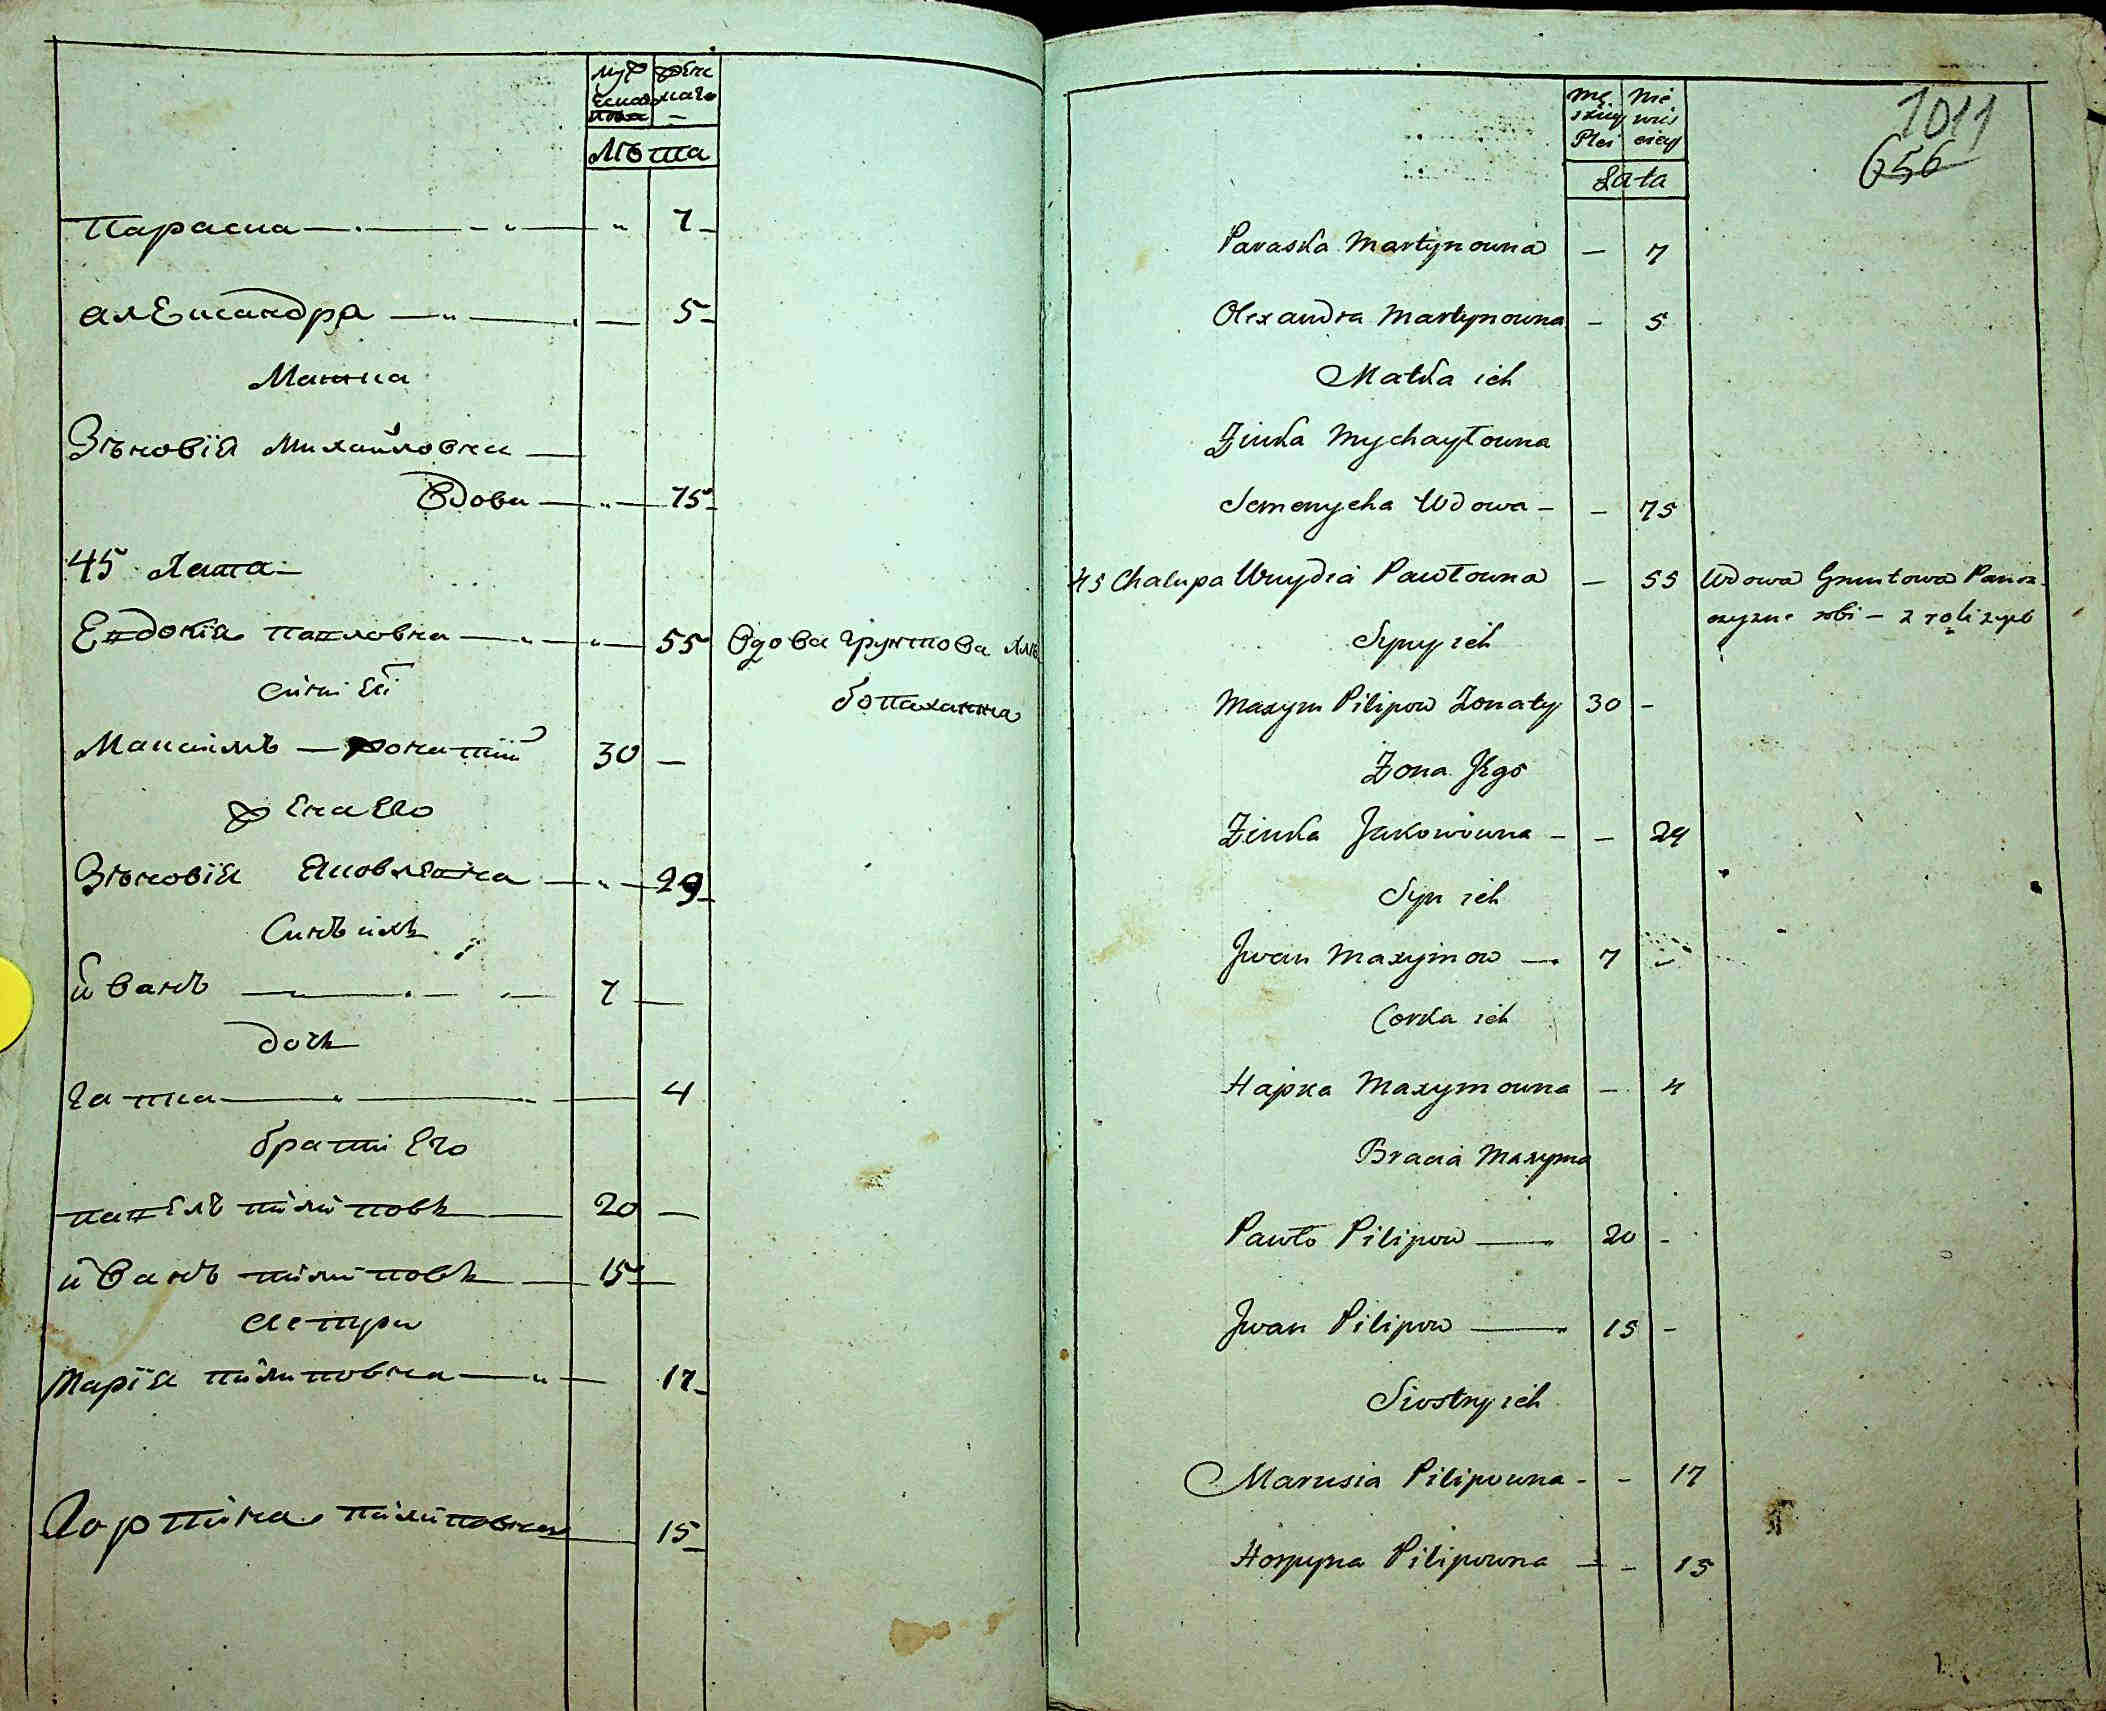 муж жен
ска маго
пола —
Лѣта
Параска — " 7
александра — 5
Матка
Зѣновія Михайловна —
Вдова — " — 75
45 Хата
Евдокія павловна — " — 55 Вдова грунтова
сини Ей
Максимъ — жонатій 30 —
жена Его
Зѣновія Яковлевна — " — 29
Синъ ихъ
иванъ — 7 —
дочь
гапка — 4
братти Его
павелъ пилиповъ — 20 —
иванъ пилиповъ — 15 —
сестри
Марія пилиповна — " — 17
Горпина пилиповна — 15
1011
656
Mę Nie
skiey wie
Płci ściey
Lata
Paraska Martynowna — 7
Olexandra Martynowna — 5
Matka ich
Zinka Mychayłowna
Semenycha Wdowa — — 75
45 Chalupa Wuydia Pawłowna — 55 Wdowa Gruntowa Pansz
czyzne robi — z roli żyie
Syny ich
Maxym Pilipow Zonaty 30 —
Zona Jego
Zinka Jakowowna — — 29
Syn ich
Jwan Maxymow — 7 —
Corka ich
Hapka Maxymowna — 4
Bracia Maxyma
Pawło Pilipow — 20 —
Jwan Pilipow — 15 —
Siostry ich
Marusia Pilipowna — — 17
Horpyna Pilipowna — — 15